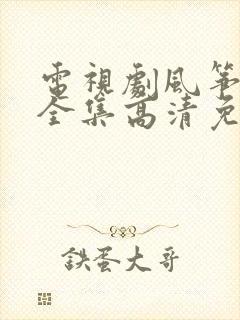 電視劇風筝
全集高清免
鉄蛋大哥